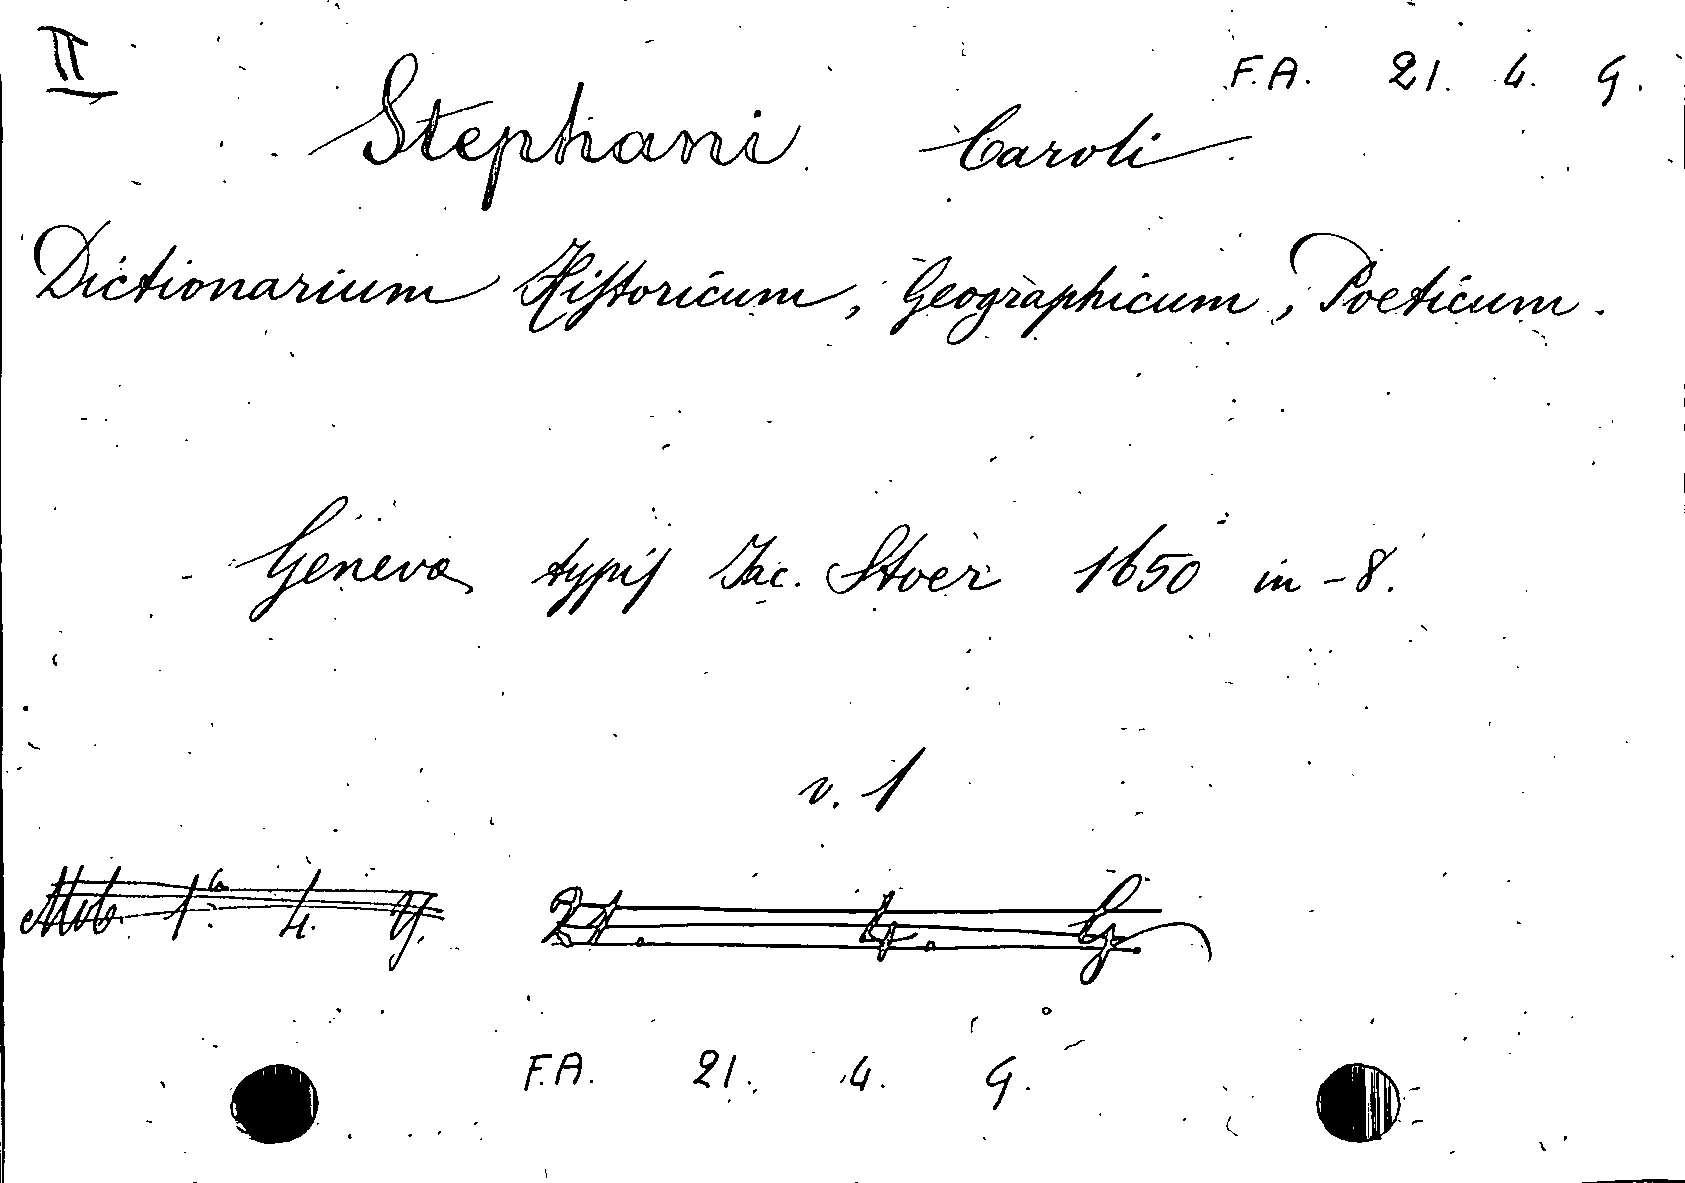 II
F.A. 21. 4. G.
Stephani Caroli
Dictionarium Historicum, Geographicum, Poeticum.
Genevæ typis Jac. Stoer 1650 in-8.
v. 1
21. 4. G
F.A. 21. 4. G.